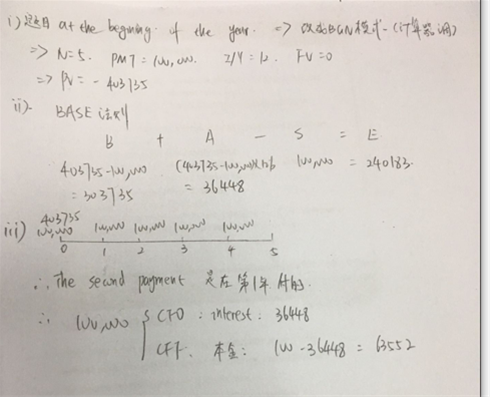 i) 题目 at the begining of the year. => 改成BGN模式-(计算器调)
=> N=5. PMT=100,000. I/Y=12. FV=0
=> PV = - 403735
ii). BASE法则
B + A - S = E
403735-100,000 (403735-100,000)×12% 100,000 = 240183.
= 303735 = 36448
iii) 403735
100,000 100,000 100,000 100,000 100,000
0 1 2 3 4 5
∴ The second payment 是在第1年付的.
∴ 100,000 { CFO : interest : 36448
CFF. 本金: 100-36448 = 63552